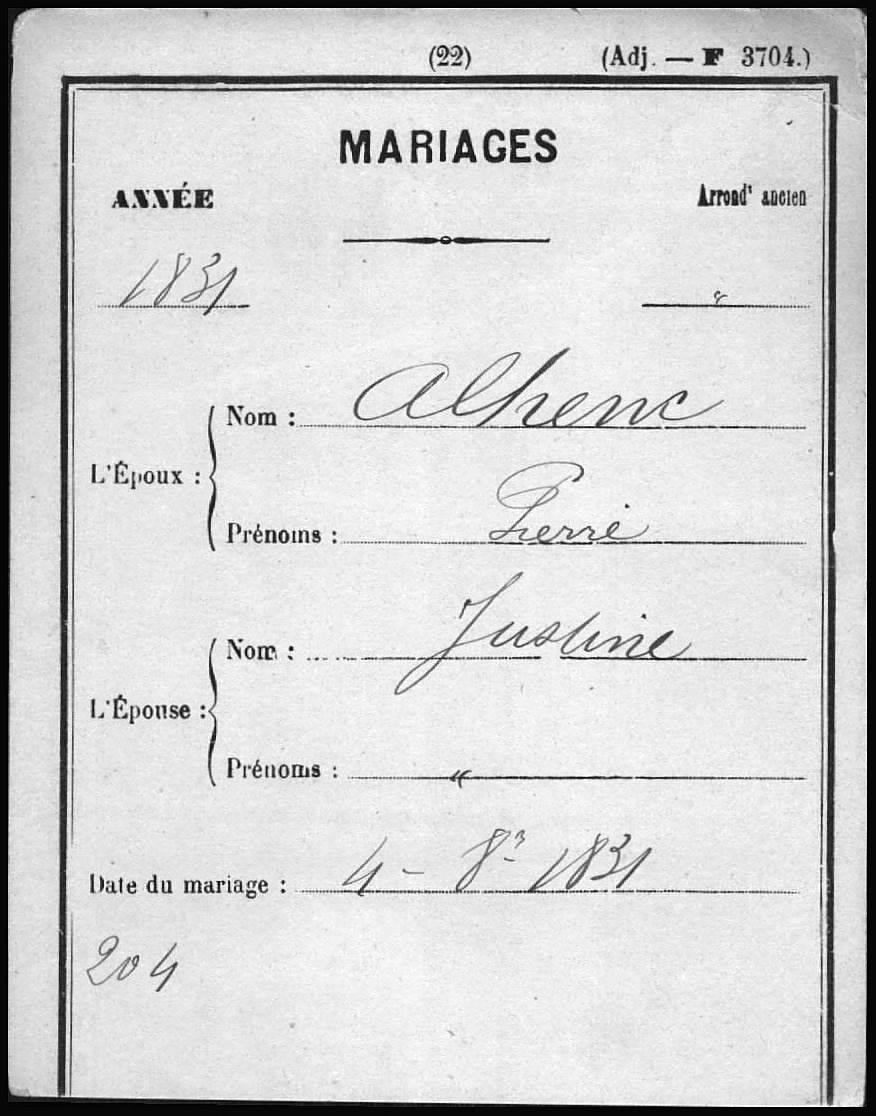 (22) (Adj. — F 3704.)
MARIAGES
ANNÉE Arrondt ancien
1831 "
L'Époux :
Nom : Alhenc
Prénoms : Pierre
L'Épouse :
Nom : Justine
Prénoms : "
Date du mariage : 4 - 8re 1831
204